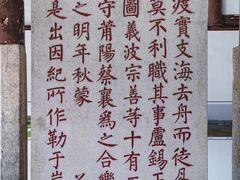 渡實支海去舟而徒易
莫不利職其事盧錫王
圖義波宗善等十有五
守莆陽蔡襄為之合樂
之明年秋蒙
是出因紀所作勒于岸